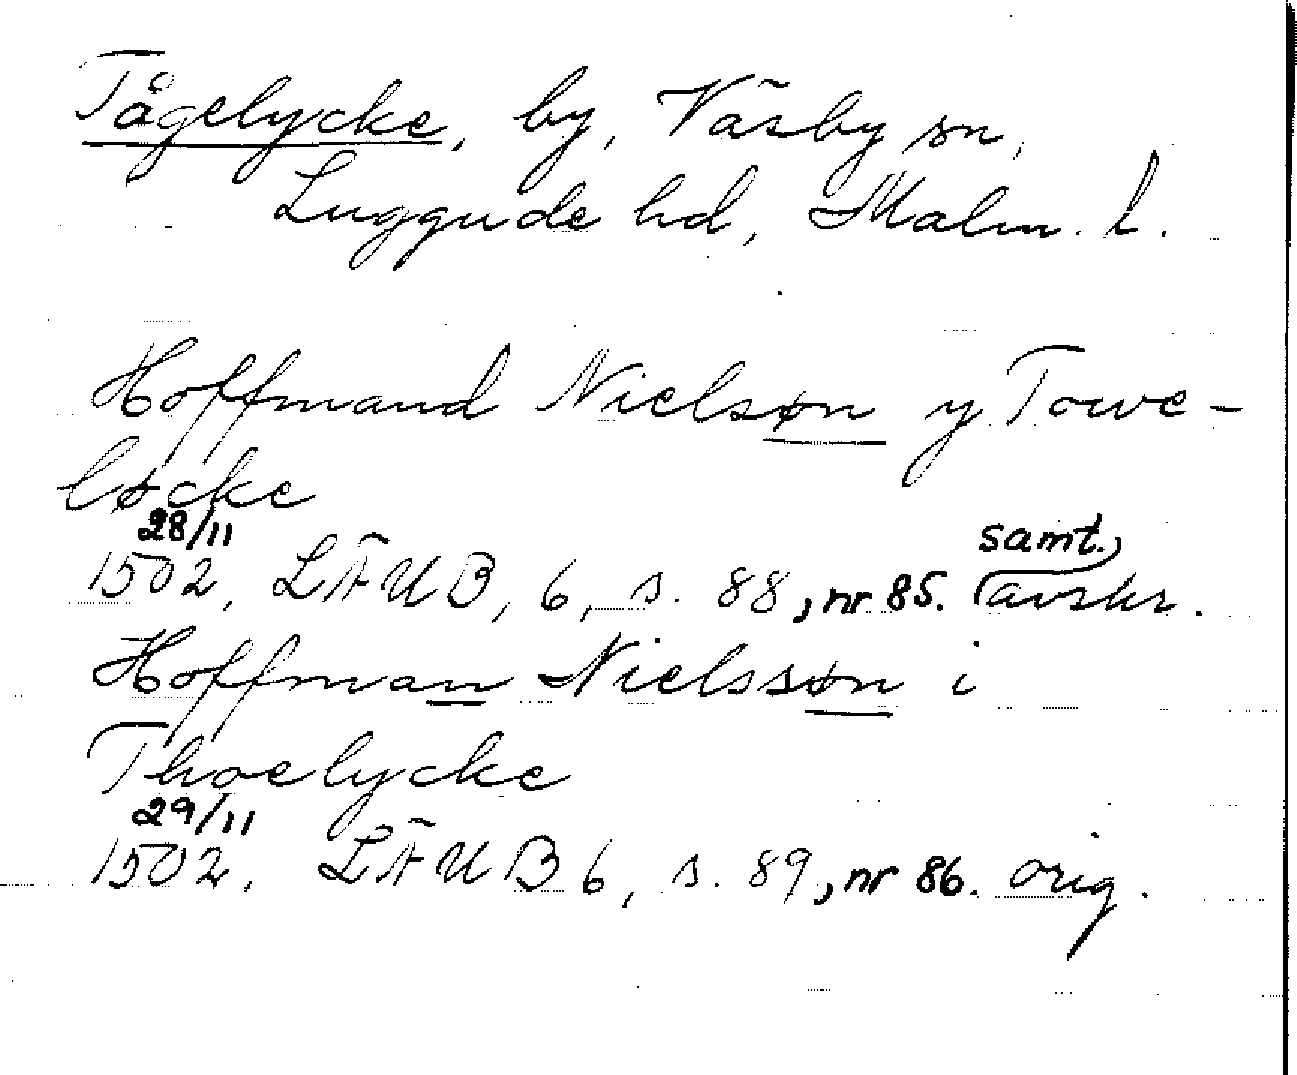 Tågelycke, by, Väsby sn,
Luggude hd, Malm. l.
Hoffmand Nielsøn y Towe-
løcke
28/11
1502, LÄUB, 6, s. 88, nr 85. samt. avskr.
Hoffman Nielssøn i
Thoelycke
29/11
1502, LÄUB 6, s. 89, nr 86. orig.